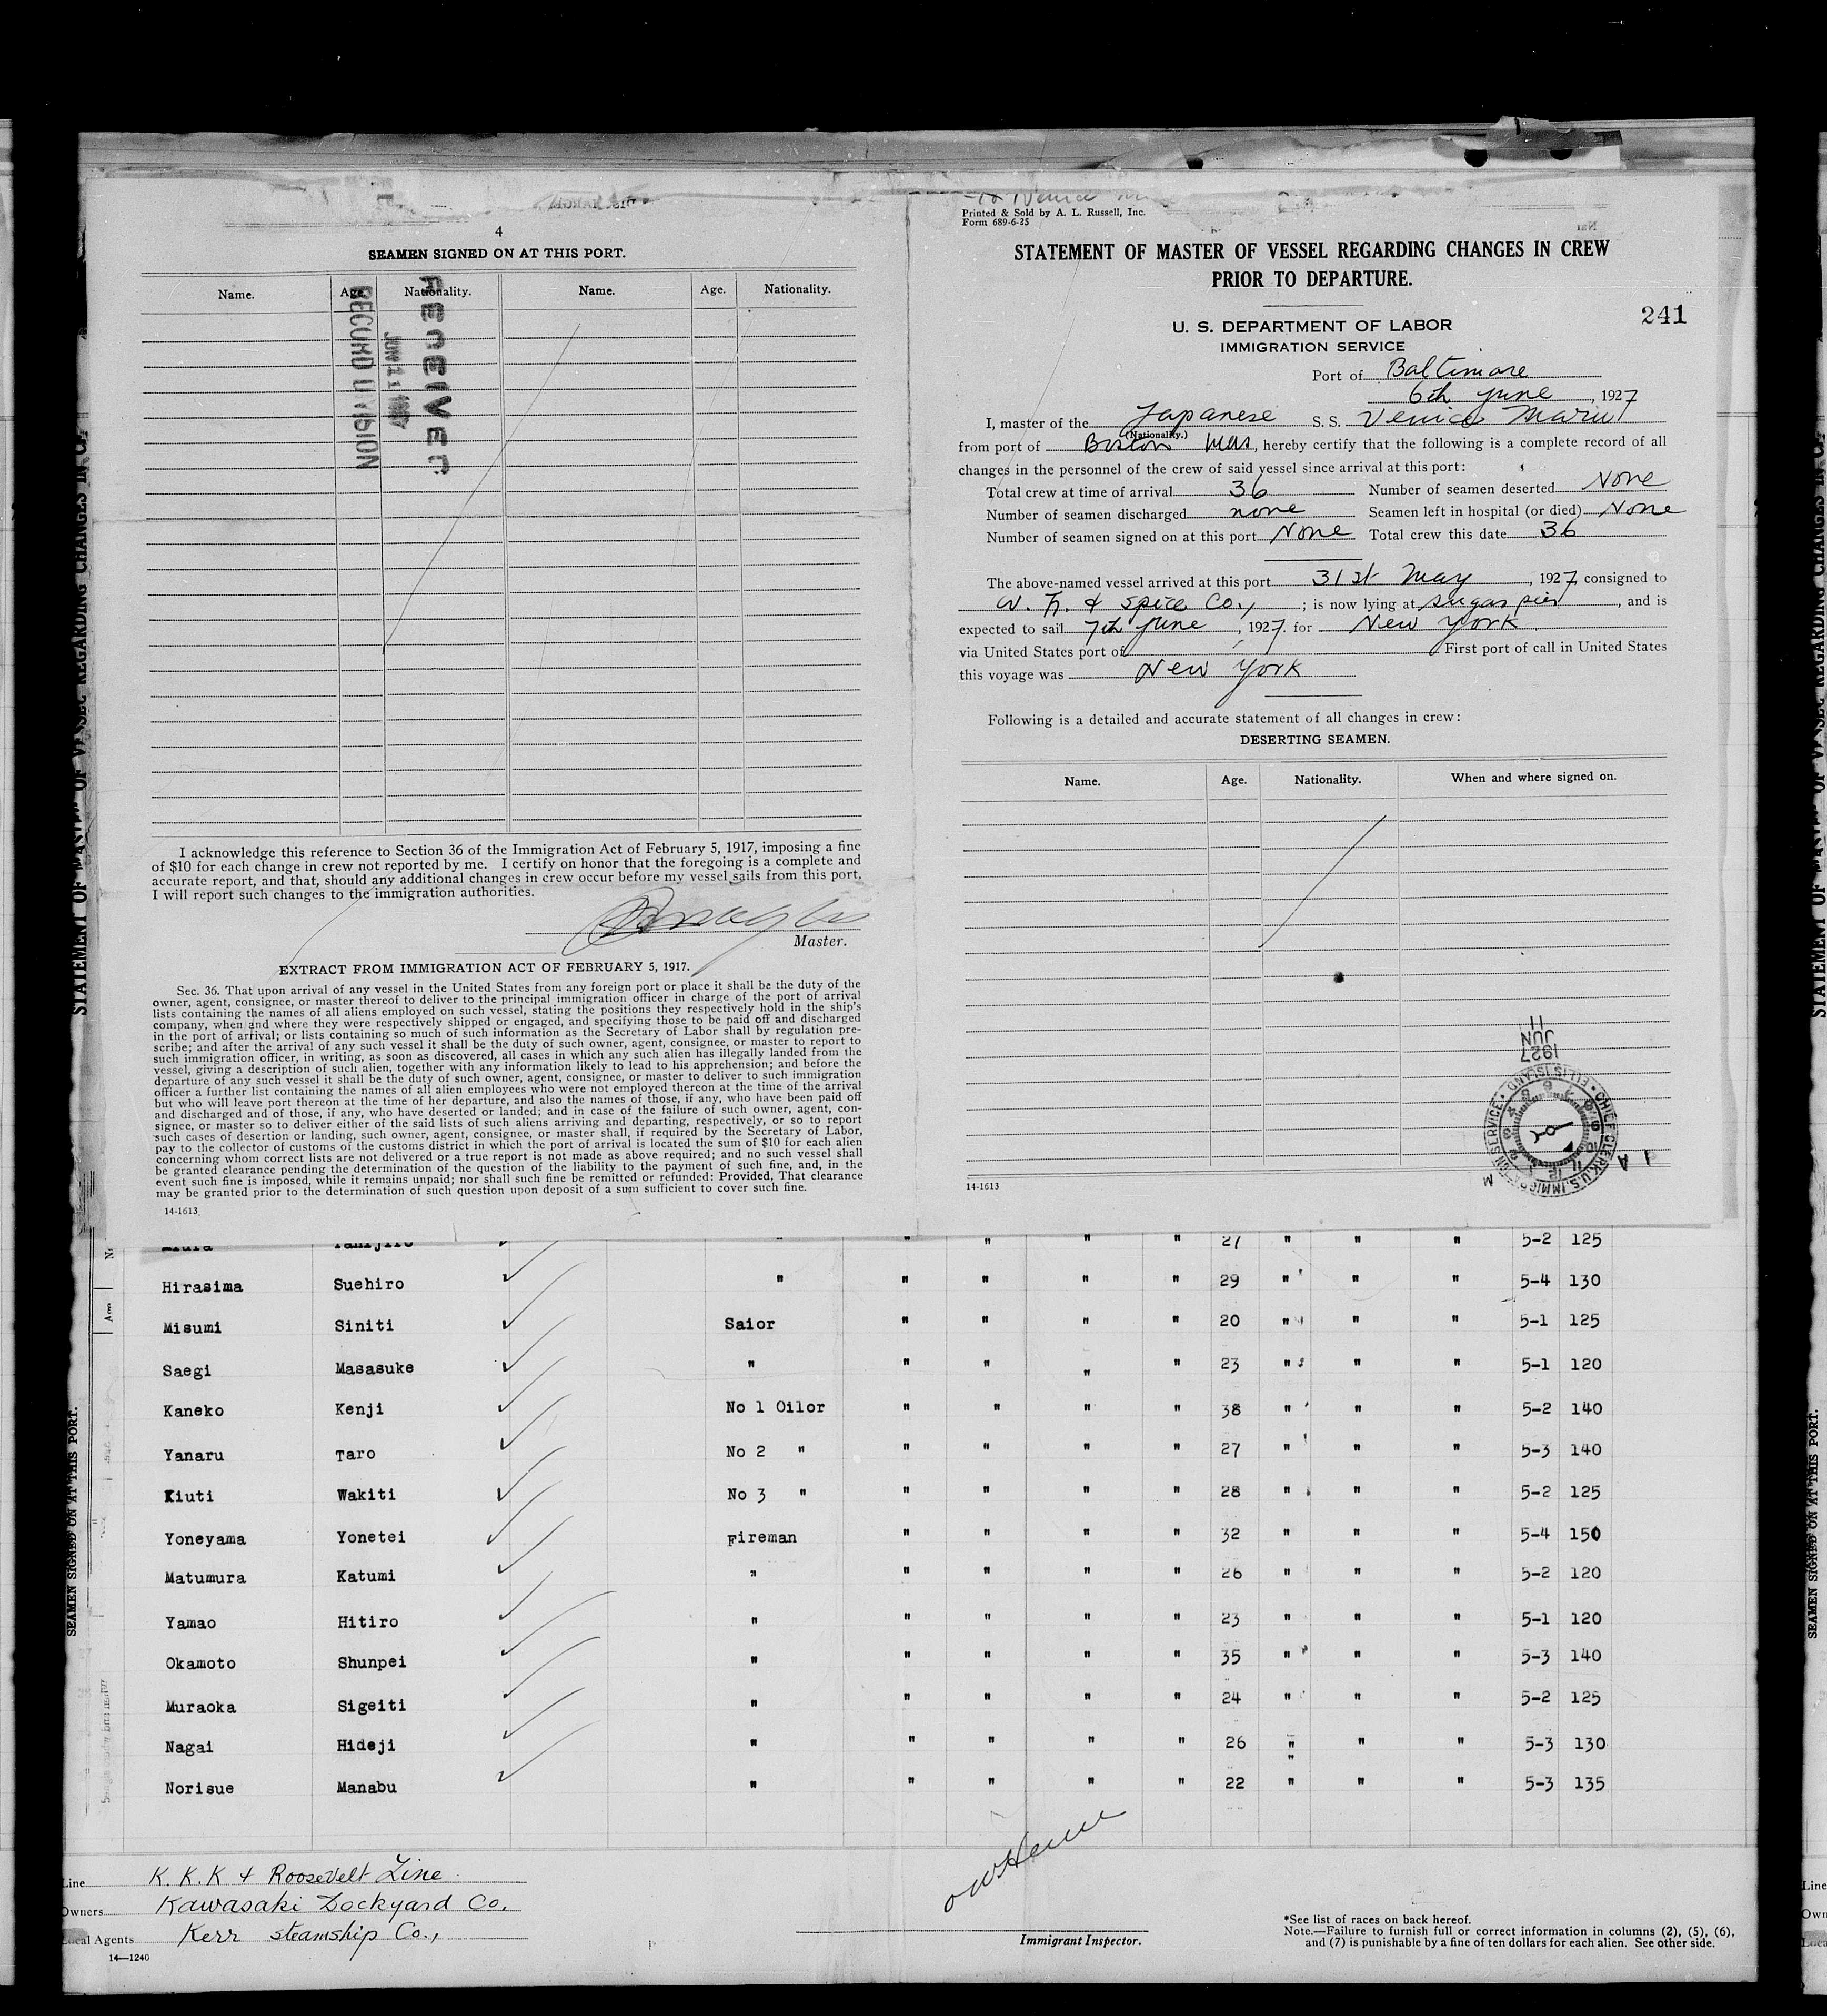 4
SEAMEN SIGNED ON AT THIS PORT.
Name. Age. Nationality. Name. Age. Nationality.
RECEIVED
JUN 11 1927
RECORD DIVISION
I acknowledge this reference to Section 36 of the Immigration Act of February 5, 1917, imposing a fine
of $10 for each change in crew not reported by me. I certify on honor that the foregoing is a complete and
accurate report, and that, should any additional changes in crew occur before my vessel sails from this port,
I will report such changes to the immigration authorities.
Master.
EXTRACT FROM IMMIGRATION ACT OF FEBRUARY 5, 1917.
Sec. 36. That upon arrival of any vessel in the United States from any foreign port or place it shall be the duty of the
owner, agent, consignee, or master thereof to deliver to the principal immigration officer in charge of the port of arrival
lists containing the names of all aliens employed on such vessel, stating the positions they respectively hold in the ship's
company, when and where they were respectively shipped or engaged, and specifying those to be paid off and discharged
in the port of arrival; or lists containing so much of such information as the Secretary of Labor shall by regulation pre-
scribe; and after the arrival of any such vessel it shall be the duty of such owner, agent, consignee, or master to report to
such immigration officer, in writing, as soon as discovered, all cases in which any such alien has illegally landed from the
vessel, giving a description of such alien, together with any information likely to lead to his apprehension; and before the
departure of any such vessel it shall be the duty of such owner, agent, consignee, or master to deliver to such immigration
officer a further list containing the names of all alien employees who were not employed thereon at the time of the arrival
but who will leave port thereon at the time of her departure, and also the names of those, if any, who have been paid off
and discharged and of those, if any, who have deserted or landed; and in case of the failure of such owner, agent, con-
signee, or master so to deliver either of the said lists of such aliens arriving and departing, respectively, or so to report
such cases of desertion or landing, such owner, agent, consignee, or master shall, if required by the Secretary of Labor,
pay to the collector of customs of the customs district in which the port of arrival is located the sum of $10 for each alien
concerning whom correct lists are not delivered or a true report is not made as above required; and no such vessel shall
be granted clearance pending the determination of the question of the liability to the payment of such fine, and, in the
event such fine is imposed, while it remains unpaid; nor shall such fine be remitted or refunded: Provided, That clearance
may be granted prior to the determination of such question upon deposit of a sum sufficient to cover such fine.
14-1613
Printed & Sold by A. L. Russell, Inc.
Form 689-6-25
STATEMENT OF MASTER OF VESSEL REGARDING CHANGES IN CREW
PRIOR TO DEPARTURE.
241
U. S. DEPARTMENT OF LABOR
IMMIGRATION SERVICE
Port of Baltimore
6th June, 1927
I, master of the Japanese S. S. Venice Maru
(Nationality.)
from port of Boston Mas, hereby certify that the following is a complete record of all
changes in the personnel of the crew of said vessel since arrival at this port:
Total crew at time of arrival 36 Number of seamen deserted None
Number of seamen discharged none Seamen left in hospital (or died) None
Number of seamen signed on at this port None Total crew this date 36
The above-named vessel arrived at this port 31st May, 1927, consigned to
& Spice Co., ; is now lying at Sugar pier, and is
expected to sail 7th June, 1927. for New York
via United States port of First port of call in United States
this voyage was New York
Following is a detailed and accurate statement of all changes in crew:
DESERTING SEAMEN.
Name. Age. Nationality. When and where signed on.
11
JUN
1927
CHIEF CLERK, U.S. IMMIGRATION SERVICE • ELLIS ISLAND •
14-1613
STATEMENT OF MASTER OF VESSEL REGARDING CHANGES IN C
SEAMEN SIGNED ON AT THIS PORT.
Miura Tamijiro " " " " " 27 " " " 5-2 125
Hirasima Suehiro " " " " " 29 " " " 5-4 130
Misumi Siniti Saior " " " " 20 " " " 5-1 125
Saegi Masasuke " " " " " 23 " " " 5-1 120
Kaneko Kenji No 1 Oilor " " " " 38 " " " 5-2 140
Yanaru Taro No 2 " " " " " 27 " " " 5-3 140
Kiuti Wakiti No 3 " " " " " 28 " " " 5-2 125
Yoneyama Yonetei Fireman " " " " 32 " " " 5-4 150
Matumura Katumi " " " " " 26 " " " 5-2 120
Yamao Hitiro " " " " " 23 " " " 5-1 120
Okamoto Shunpei " " " " " 35 " " " 5-3 140
Muraoka Sigeiti " " " " " 24 " " " 5-2 125
Nagai Hideji " " " " " 26 " " " 5-3 130
Norisue Manabu " " " " " 22 " " " 5-3 135
Line K. K. K & Roosevelt Line
Owners Kawasaki Dockyard Co,
Local Agents Kerr steamship Co.,
14—1240
Immigrant Inspector.
*See list of races on back hereof.
Note.—Failure to furnish full or correct information in columns (2), (5), (6),
and (7) is punishable by a fine of ten dollars for each alien. See other side.